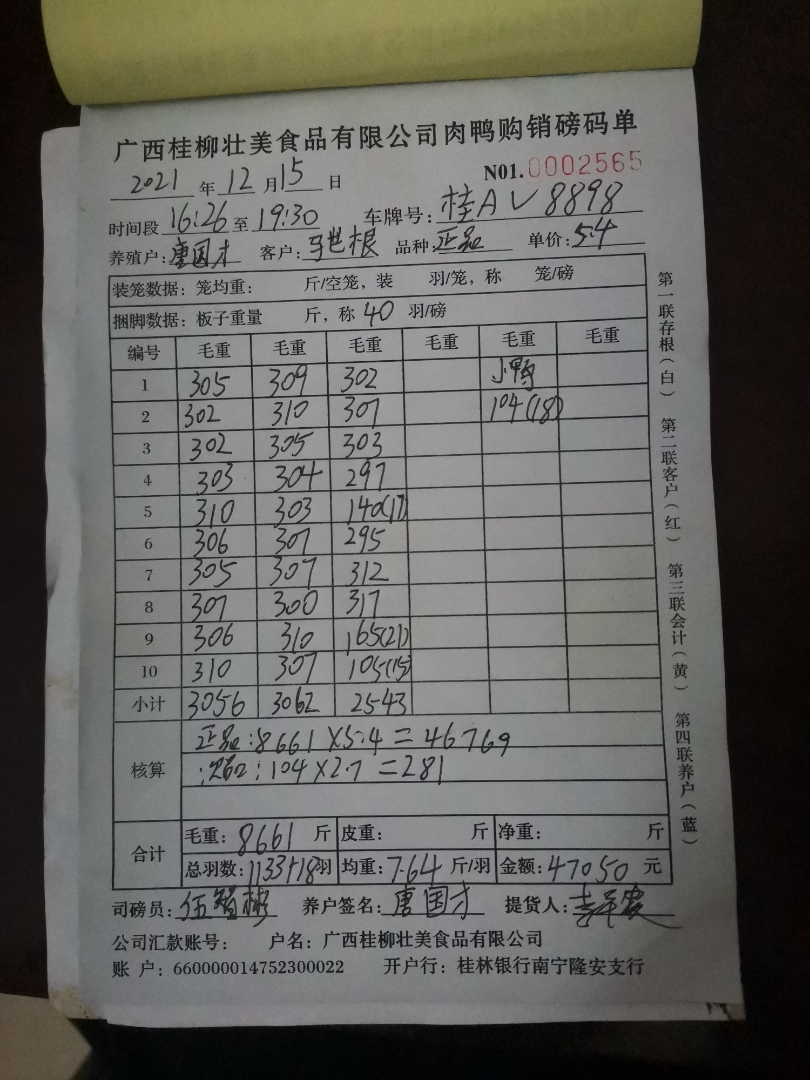 广西桂柳壮美食品有限公司肉鸭购销磅码单
2021 年 12 月 15 日 N01.0002565
时间段 16:26 至 19:30 车牌号: 桂AV8898
养殖户: 唐国才 客户: 马世根 品种: 正品 单价: 5.4
装笼数据: 笼均重: 斤/空笼, 装 羽/笼, 称 笼/磅
捆脚数据: 板子重量 斤, 称 40 羽/磅
编号 毛重 毛重 毛重 毛重 毛重 毛重
1 305 309 302 小鸭
2 302 310 307 104(18)
3 302 305 303
4 303 304 297
5 310 303 140(17)
6 306 307 295
7 305 307 312
8 307 300 317
9 306 310 165(21)
10 310 307 105(15)
小计 3056 3062 2543
核算
正品:8661×5.4=46769
:104×2.7=281
合计
毛重: 8661 斤 皮重: 斤 净重: 斤
总羽数: 1133+18羽 均重: 7.64 斤/羽 金额: 47050 元
司磅员: 伍智彬 养户签名: 唐国才 提货人:
公司汇款账号: 户名: 广西桂柳壮美食品有限公司
账 户: 660000014752300022 开户行: 桂林银行南宁隆安支行
第一联存根(白) 第二联客户(红) 第三联会计(黄) 第四联养户(蓝)